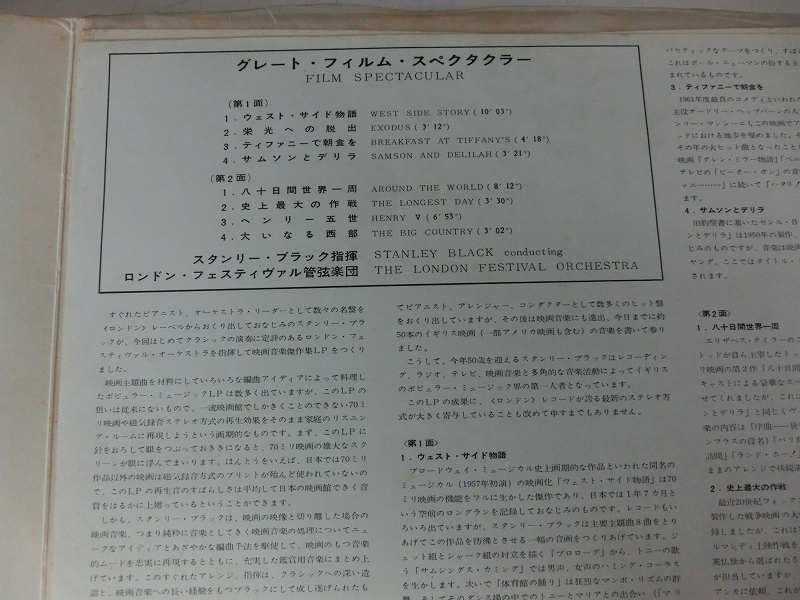 グレート・フィルム・スペクタクラー
FILM SPECTACULAR
(第1面)
1. ウェスト・サイド物語 WEST SIDE STORY (10′03″)
2. 栄光への脱出 EXODUS (3′12″)
3. ティファニーで朝食を BREAKFAST AT TIFFANY'S (4′18″)
4. サムソンとデリラ SAMSON AND DELILAH (3′21″)
(第2面)
1. 八十日間世界一周 AROUND THE WORLD (8′12″)
2. 史上最大の作戦 THE LONGEST DAY (3′30″)
3. ヘンリー五世 HENRY V (6′53″)
4. 大いなる西部 THE BIG COUNTRY (3′02″)
スタンリー・ブラック指揮 STANLEY BLACK conducting
ロンドン・フェスティヴァル管弦楽団 THE LONDON FESTIVAL ORCHESTRA
すぐれたピアニスト、オーケストラ・リーダーとして数々の名盤を
《ロンドン》レーベルからおくり出しておなじみのスタンリー・ブラ
ックが、今回はじめてクラシックの演奏に定評のあるロンドン・フェ
スティヴァル・オーケストラを指揮して映画音楽傑作集LPをつくり
ました。
映画主題曲を材料にしていろいろな編曲アイディアによって料理し
たポピュラー・ミュージックLPは数多く出ていますが、このLPの
狙いは従来にないもので、一流映画館でしかきくことのできない70ミ
リ映画や磁気録音ステレオ方式の再生効果をそのまま家庭のリスニン
グ・ルームに再現しようという画期的なものです。まず、このLPに
針をおろして眼をつぶっておききになると、70ミリ映画の雄大なスク
リーンが眼に浮んでまいります。ほんとうをいえば、日本では70ミリ
作品以外の映画は磁気録音方式のプリントが殆んど使われていないの
で、このLPの再生音のすばらしさは平均して日本の映画館できく音
質をはるかに上廻っているということができます。
しかも、スタンリー・ブラックは、映画の映像と切り離した場合の
映画音楽、つまり純粋に音楽としてきく映画音楽の処理についてニュ
ークなアイディアとあざやかな編曲手法を駆使して、映画のもつ音楽
的ムードを忠実に再現するとともに、充実した鑑賞用音楽にまとめ上
げています。このすぐれたアレンジ、指揮は、クラシックへの深い造
詣と、映画音楽への長い経験をもつブラックにして成し遂げられたも
てピアニスト、アレンジャー、コンダクターとして数多くのヒット盤
をおくり出していますが、その後は映画音楽にも進出、今日までに約
50本のイギリス映画(一部アメリカ映画も含む)の音楽を書いて参り
ました。
こうして、今年50歳を迎えるスタンリー・ブラックはレコーディン
グ、ラジオ、テレビ、映画音楽と多角的な音楽活動によってイギリス
のポピュラー・ミュージック界の第一人者となっています。
このLPの成果に、《ロンドン》レコードが誇る最新のステレオ方
式が大きく寄与していることも改めて申すまでもありません。
《第1面》
1. ウェスト・サイド物語
ブロードウェイ・ミュージカル史上画期的な作品といわれた同名の
ミュージカル(1957年初演)の映画化「ウェスト・サイド物語」は70
ミリ映画の機能をフルに生かした傑作であり、日本では1年7カ月と
いう空前のロングランを記録しておなじみのものです。レコードもい
ろいろ出ていますが、スタンリー・ブラックは主要主題曲8曲をとり
あげてこの作品を彷彿とさせる一幅の音画をつくりあげています。ジ
ェット組とシャーク組の対立を描く「プロローグ」から、トニーの歌
う「サムシングス・カミング」では男声、女声のハミング・コーラス
を生かします。次いで「体育館の踊り」は狂烈なマンボ・リズムの群
舞、そしてそのダンス場の中でのトニーとマリアとの出会い(「マリ
パセティックなテーマをつくり、
まれているものです。
3. ティファニーで朝食を
1961年度最良のコメディといわれ
4. サムソンとデリラ
《第2面》
1. 八十日間世界一周
2. 史上最大の作戦